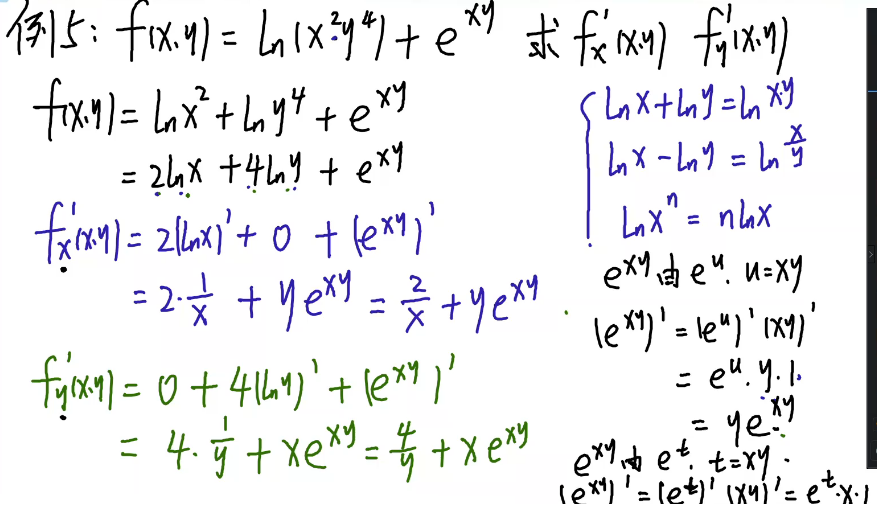 例15: f(x,y) = ln(x²y⁴) + e^{xy} 求 f'ₓ(x,y) f'ᵧ(x,y)
f(x,y) = lnx² + lny⁴ + e^{xy}
= 2lnx + 4lny + e^{xy}
f'ₓ(x,y) = 2(lnx)' + 0 + (e^{xy})'
= 2·1/x + ye^{xy} = 2/x + ye^{xy}
f'ᵧ(x,y) = 0 + 4(lny)' + (e^{xy})'
= 4·1/y + xe^{xy} = 4/y + xe^{xy}
lnx + lny = lnxy
lnx - lny = ln x/y
lnxⁿ = nlnx
e^{xy} 由 e^u. u=xy
(e^{xy})' = (e^u)' (xy)'
= e^u · y · 1
= ye^{xy}
e^{xy} 由 e^t. t=xy.
(e^{xy})' = (e^t)' (xy)' = e^t·x·1